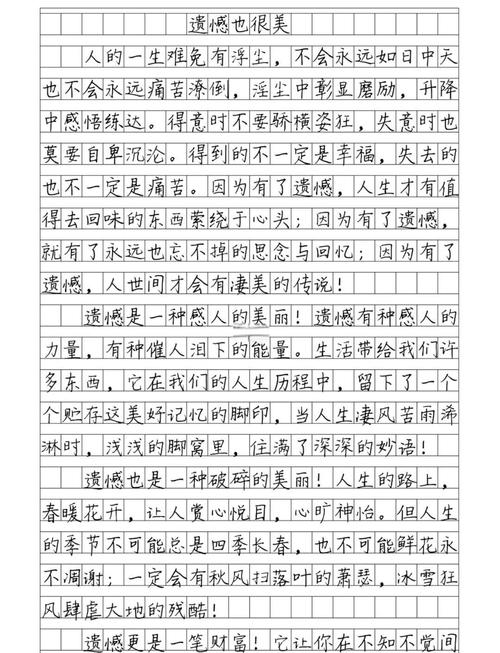 遗憾也很美
人的一生难免有浮尘，不会永远如日中天
也不会永远痛苦潦倒，淫尘中彰显磨励，升降
中感悟练达。得意时不要骄横姿狂，失意时也
莫要自卑沉沦。得到的不一定是幸福，失去的
也不一定是痛苦。因为有了遗憾，人生才有值
得去回味的东西萦绕于心头；因为有了遗憾，
就有了永远也忘不掉的思念与回忆；因为有了
遗憾，人世间才会有凄美的传说！
遗憾是一种感人的美丽！遗憾有种感人的
力量，有种催人泪下的能量。生活带给我们许
多东西，它在我们的人生历程中，留下了一个
个贮存这美好记忆的脚印，当人生凄风苦雨浠
淋时，浅浅的脚窝里，住满了深深的妙语！
遗憾也是一种破碎的美丽！人生的路上，
春暖花开，让人赏心悦目，心旷神怡。但人生
的季节不可能总是四季长春，也不可能鲜花永
不凋谢；一定会有秋风扫落叶的萧瑟，冰雪狂
风肆虐大地的残酷！
遗憾更是一笔财富！它让你在不知不觉间